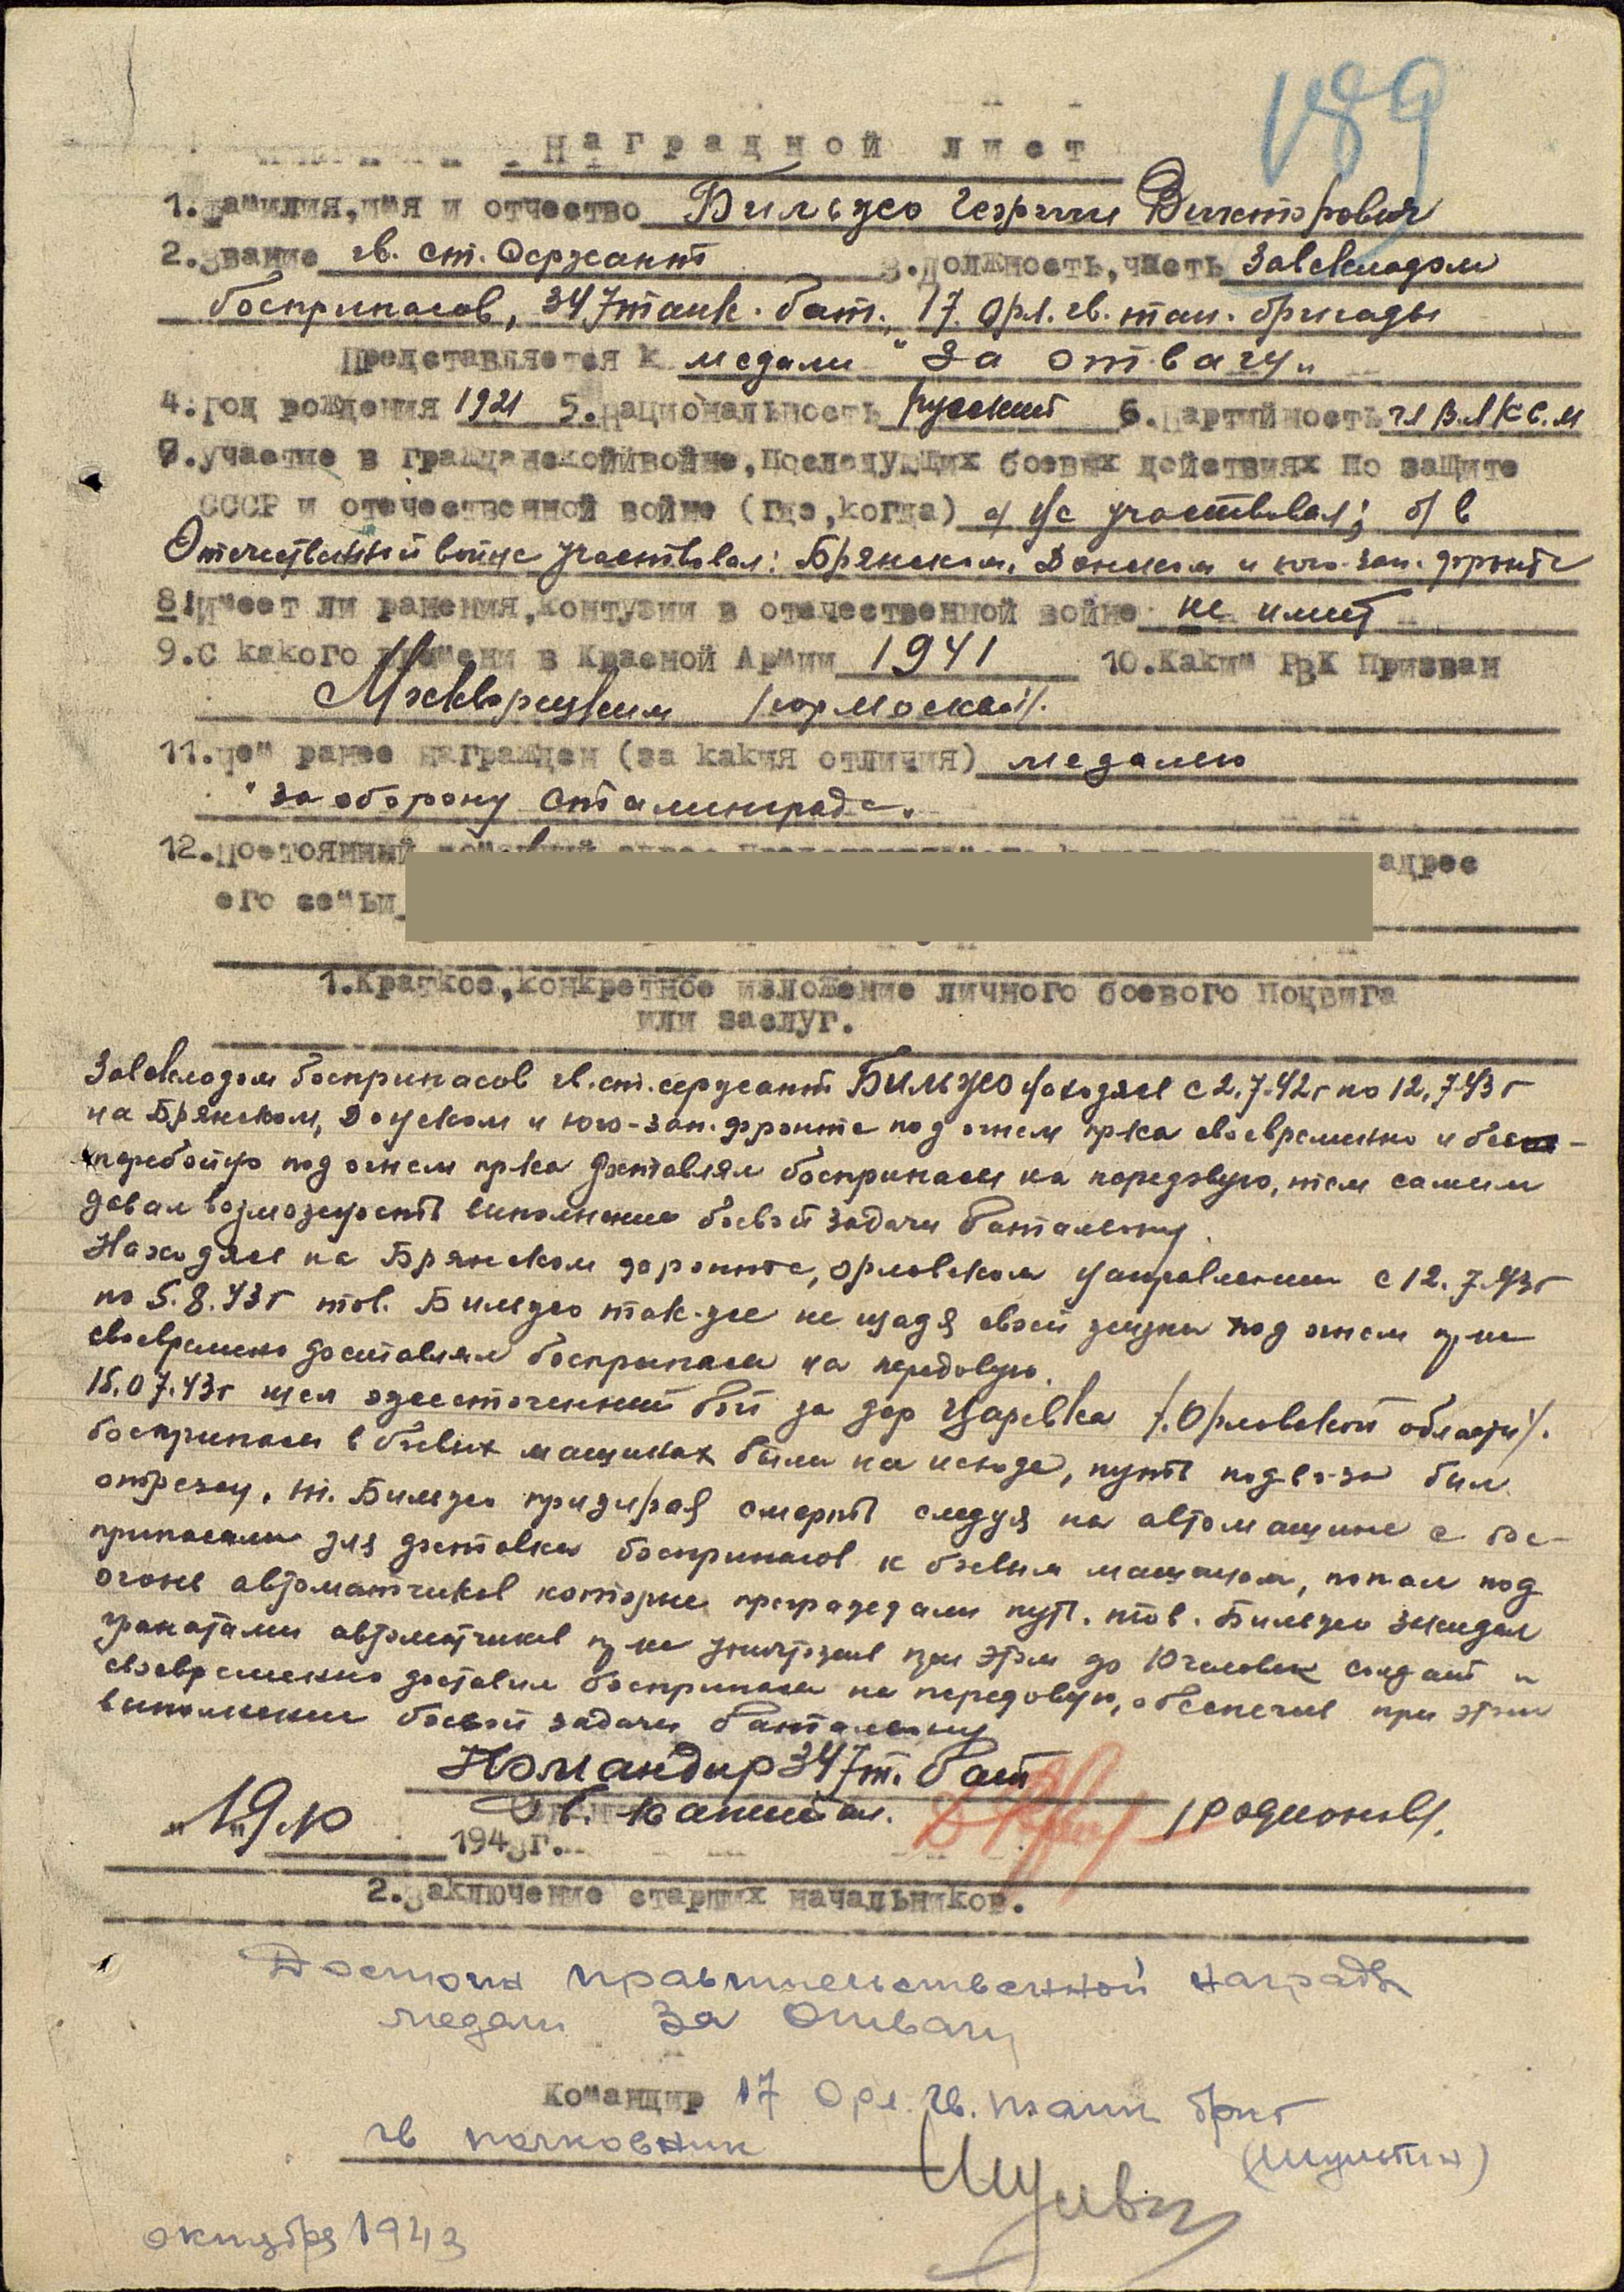 189
Наградной лист
1.Фамилия,имя и отчество Бильжо Георгий Викторович
2.Звание гв. ст. Сержант 3.Должность,часть Завскладом
боеприпасов, 347 танк. бат., 17. Орл. гв. тан. бригады
Представляется к медали "За отвагу"
4.Год рождения 1921 5.Национальность русский 6.Партийность чл ВЛКС.М
7.участие в гражданскойвойне,последующих боевых действиях по защите
СССР и отечественной войне (где,когда) а) не участвовал; б) в
Отечественной войне участвовал: Брянском, Донском и юго-зап. фронте
8.Имеет ли ранения,контузии в отечественной войне не имеет
9.С какого времени в Красной Армии 1941 10.Каким РВК Призван
Москворецким /гор Москва/.
11.Чем ранее награжден (за какия отличия) медалью
"за оборону Сталинграда".
12.Постоянный адрес
его семьи
1.Краткое,конкретное изложение личного боевого подвига
или заслуг.
Завскладом боеприпасов гв.ст.сержант Бильжо находясь с 2.7.42г по 12.7.43г
на Брянском, Донском и юго-зап.фронте под огнем пр-ка своевременно и бес-
перебойно под огнем пр-ка доставлял боеприпасы на передовую, тем самым
давал возможность выполнение боевой задачи батальону.
Находясь на Брянском фронте, орловском направлении с 12.7.43г
по 5.8.43г тов. Бильжо так-же не щадя своей жизни под огнем пр-ка
своевремено доставлял боеприпасы на передовую.
15.07.43г шел ожесточенный бой за дер Царевка /Орловской области/.
боеприпасы в боевых машинах были на исходе, путь подвоза был
отрезан, т. Бильжо призирая смерть следуя на автомашине с бое-
припасами для доставки боеприпасов к боевым машинам, попал под
огонь автоматчиков которые преграждали путь. тов. Бильжо закидал
гранатами автоматчиков пр-ка уничтожив при этом до 10 человек солдат и
своевременно доставил боеприпасы на передовую, обеспечив при этом
выполнение боевой задачи батальону
Командир 347 т. бат
Гв. капитан. /Родионов/.
"19".10 1943г.
2.Заключение старших начальников.
Достоин правительственной награды
медали За Отвагу
Командир 17 Орл. гв. танк бриг
гв полковник
(Шульгин)
октября 1943